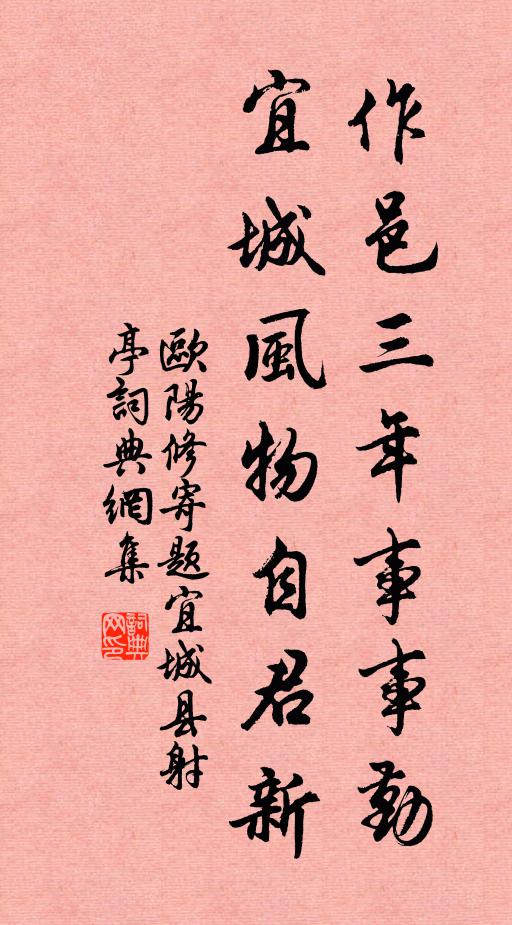 作邑三年事事勤
宜城風物自君新
歐陽修寄题宜城县射
亭詞典網集
詞典
网印